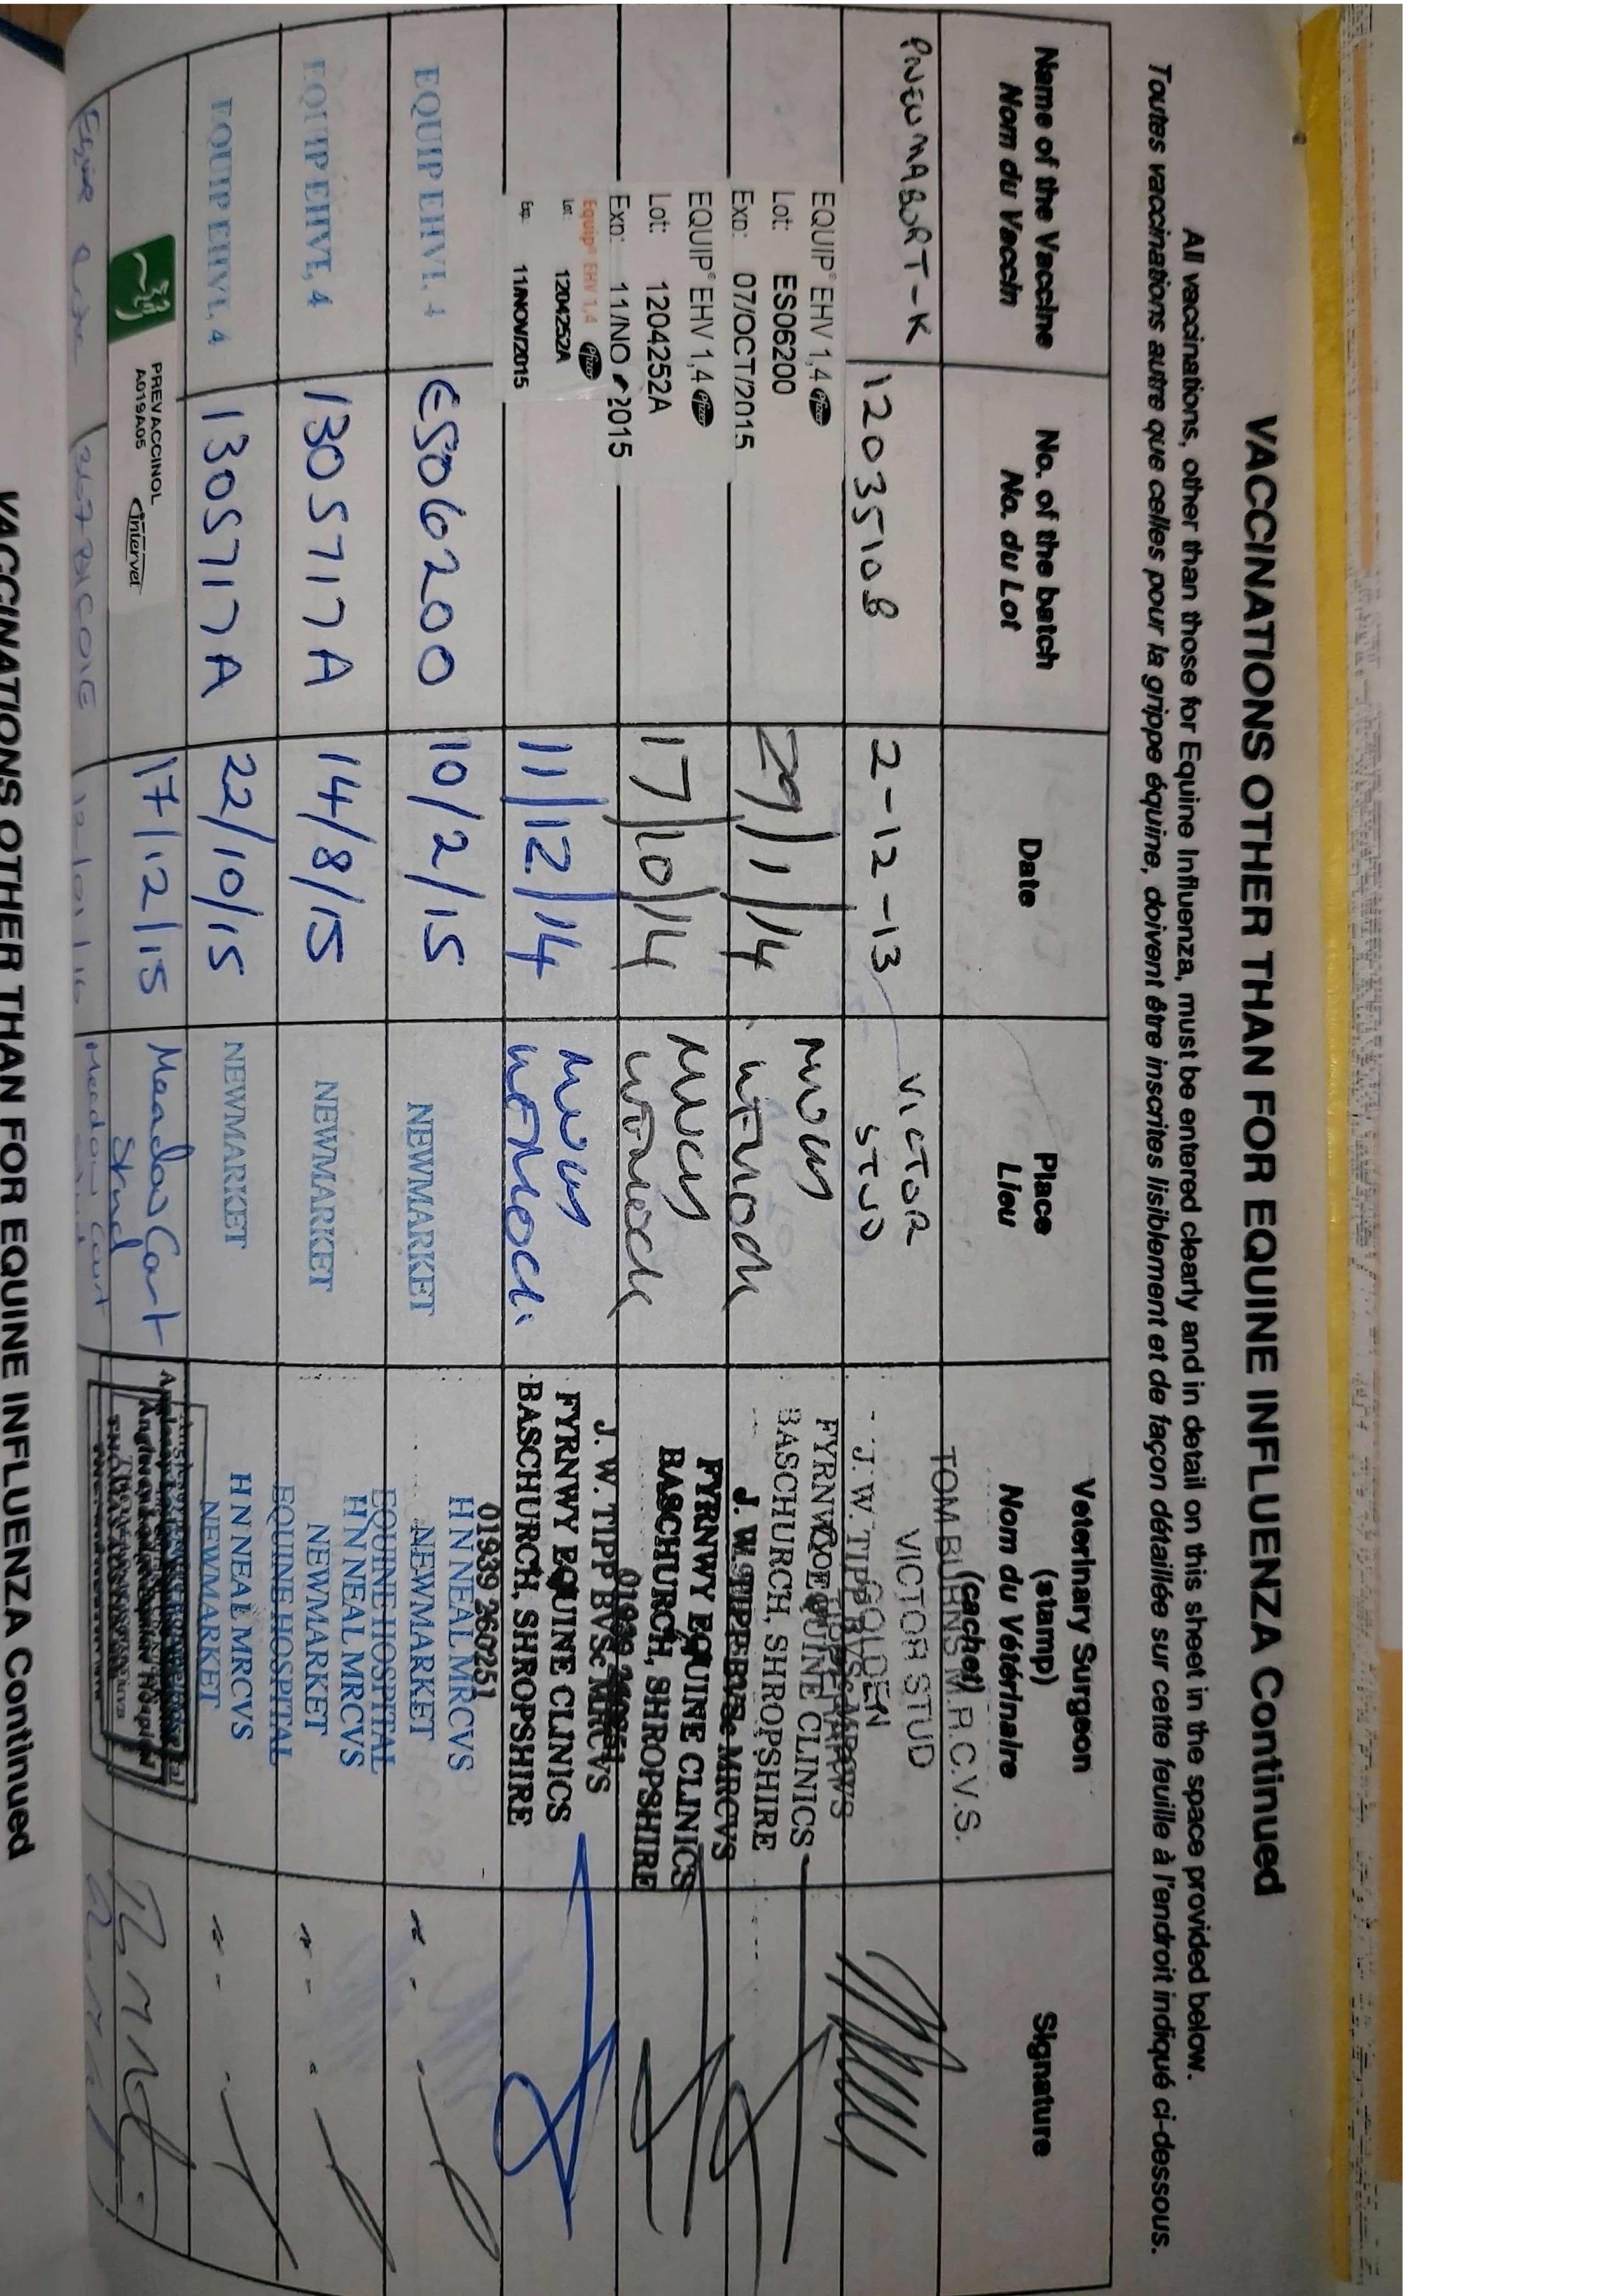 VACCINATIONS OTHER THAN FOR EQUINE INFLUENZA Continued
All vaccinations, other than those for Equine Influenza, must be entered clearly and in detail on this sheet in the space provided below.
Toutes vaccinations autre que celles pour la grippe équine, doivent être inscrites lisiblement et de façon détaillée sur cette feuille à l'endroit indiqué ci-dessous.
Name of the Vaccine
Nom du Vaccin
No. of the batch
No. du Lot
Date
Place
Lieu
Veterinary Surgeon
(stamp)
Nom du Vétérinaire
(cachet)
Signature
PNEUMABORT-K
12035108
2-12-13
VICTOR
STUD
TOM BURNS M.R.C.V.S.
VICTOR STUD
GOLDEN
EQUIP® EHV 1,4 Pfizer
Lot: ES06200
Exp: 07/OCT/2015
29/1/14
J. W. TIPP BVSc MRCVS
FYRNWY EQUINE CLINICS
BASCHURCH, SHROPSHIRE
EQUIP® EHV 1,4 Pfizer
Lot: 1204252A
Exp: 11/NO 2015
17/10/14
J. W. TIPP BVSc MRCVS
FYRNWY EQUINE CLINICS
BASCHURCH, SHROPSHIRE
Equip® EHV 1,4 Pfizer
Lot: 1204252A
Exp: 11/NOV/2015
11/12/14
J. W. TIPP BVSc MRCVS
FYRNWY EQUINE CLINICS
BASCHURCH, SHROPSHIRE
01939 260251
EQUIP EHV1, 4
ES06200
10/2/15
NEWMARKET
H N NEAL MRCVS
NEWMARKET
EQUINE HOSPITAL
EQUIP EHV1, 4
1305717A
14/8/15
NEWMARKET
H N NEAL MRCVS
NEWMARKET
EQUINE HOSPITAL
EQUIP EHV1, 4
1305717A
22/10/15
NEWMARKET
H N NEAL MRCVS
NEWMARKET
PREVACCINOL
A019A05
Intervet
17/12/15
Meadow Court
Stud
Meadow Court
VACCINATIONS OTHER THAN FOR EQUINE INFLUENZA Continued